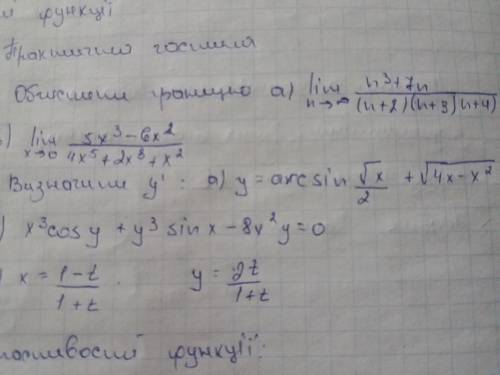 функції
Практично
Обчислити границю а) lim n→∞ (n³+7n)/((n+2)(n+3)(n+4))
) lim x→0 (5x³-6x²)/(4x⁵+2x⁸+x²)
Визначити y' : а) y = arcsin √x/2 + √(4x-x²)
) x³cos y + y³ sin x - 8x²y = 0
x = (1-t)/(1+t) . y = 2t/(1+t)
функції: